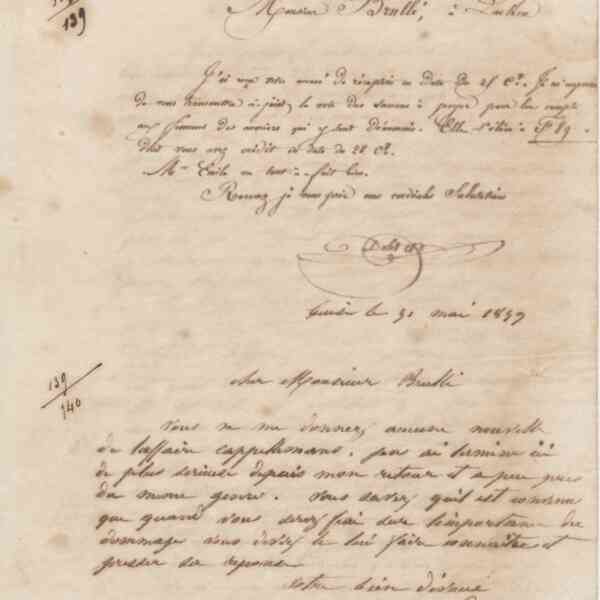 139
Monsieur Brullé, à
J'ai reçu votre accusé de réception en date du 25 Ct. Je m'empresse
de vous transmettre ci-joint, la note des sommes à payer pour le compte
aux femmes des ouvriers qui y sont dénommés. Elle s'élève à F 89.
dont vous avez crédit à date de 28 Ct.
Mme Emile va tout-à-fait bien.
Recevez je vous prie mes cordiales Salutations
Guise le 31 mai 1859
139
140
cher Monsieur Brullé
Vous ne me donnez aucune nouvelle
de l'affaire cappelmans. j'en ai terminé ici
de plus sérieuse depuis mon retour et a peu près
du meme genre. Vous savez qu'il est convenu
que quand vous serez fixé sur l'importance du
dommage vous devez le lui faire connaitre et
presser sa reponse
votre bien dévoué